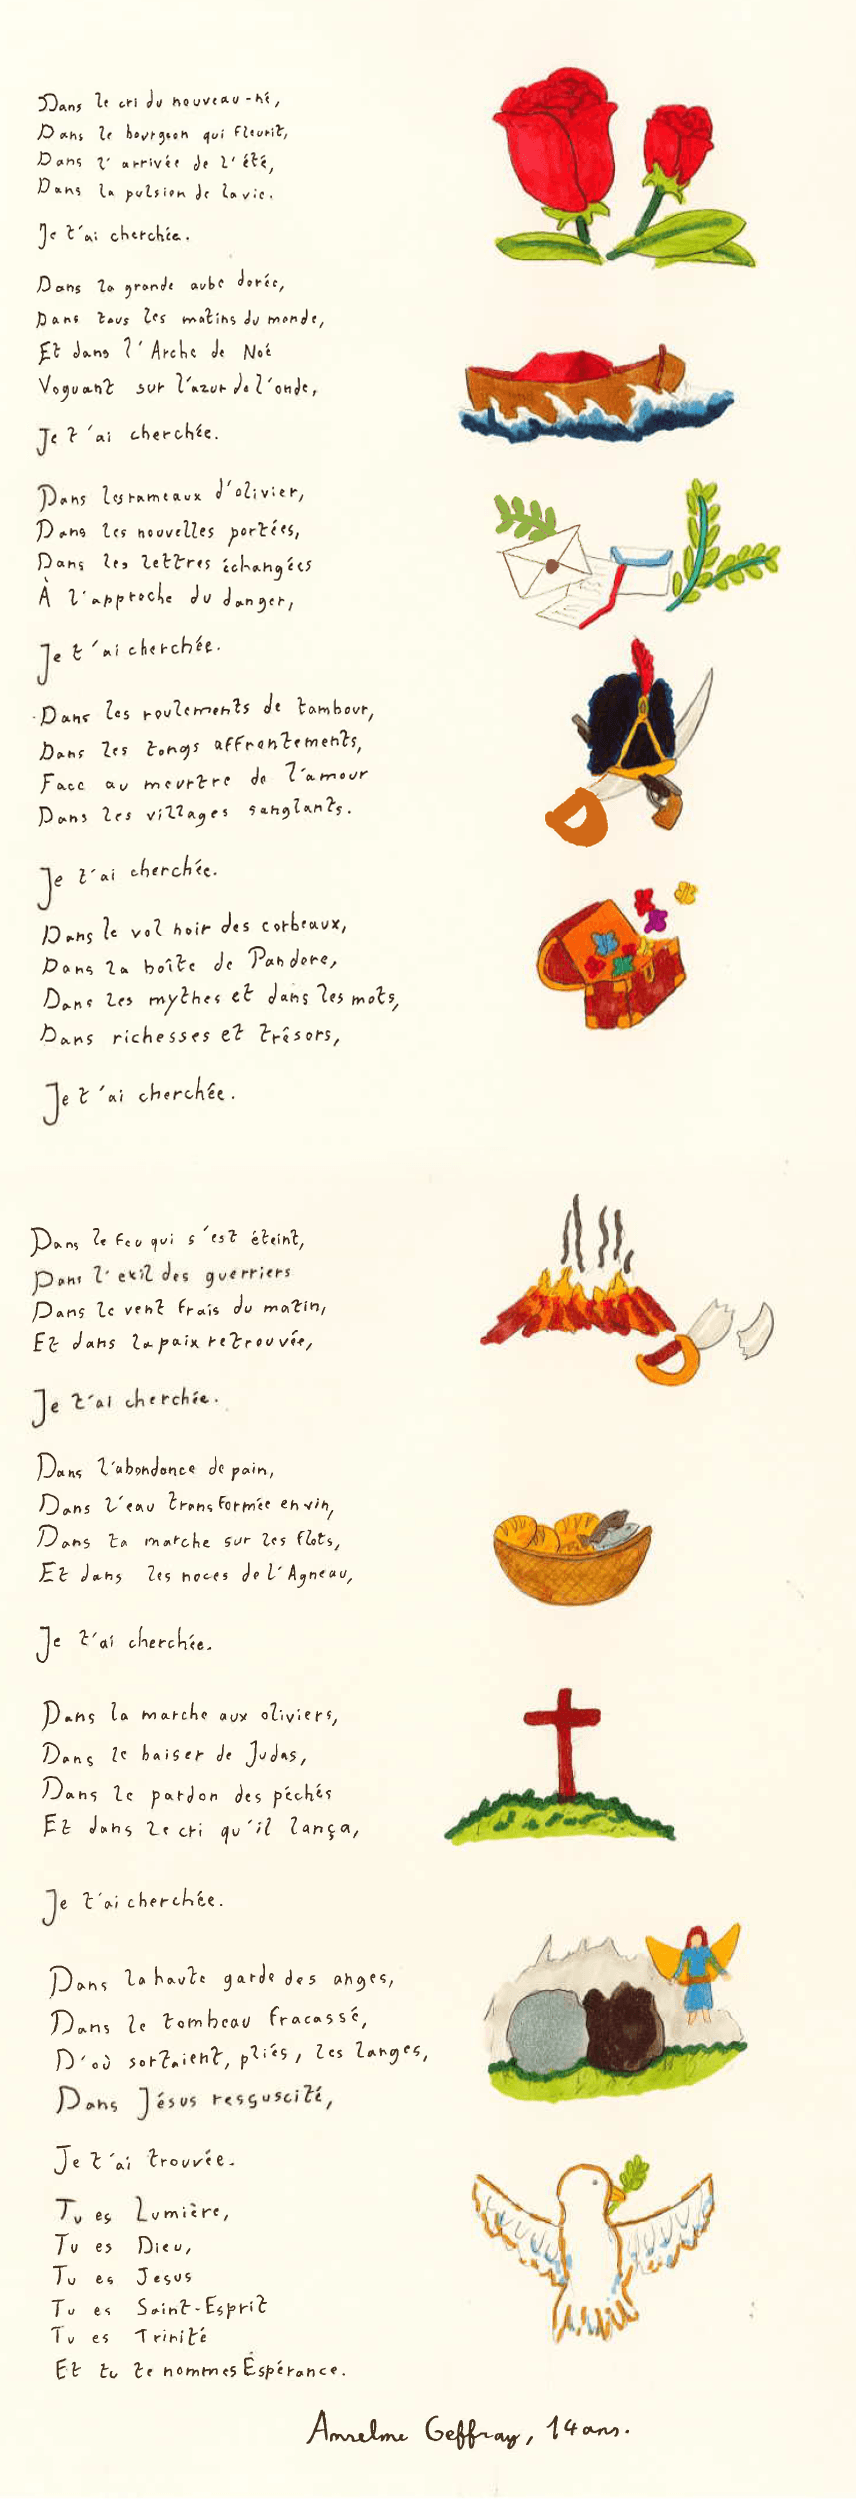 Dans le cri du nouveau-né,
Dans le bourgeon qui fleurit,
Dans l'arrivée de l'été,
Dans la pulsion de la vie.
Je t'ai cherchée.
Dans la grande aube dorée,
Dans tous les matins du monde,
Et dans l'Arche de Noé
Voguant sur l'azur de l'onde,
Je t'ai cherchée.
Dans les rameaux d'olivier,
Dans les nouvelles portées,
Dans les lettres échangées
À l'approche du danger,
Je t'ai cherchée.
Dans les roulements de tambour,
Dans les longs affrontements,
Face au meurtre de l'amour
Dans les villages sanglants.
Je t'ai cherchée.
Dans le vol noir des corbeaux,
Dans la boîte de Pandore,
Dans les mythes et dans les mots,
Dans richesses et trésors,
Je t'ai cherchée.
Dans le feu qui s'est éteint,
Dans l'exil des guerriers
Dans le vent frais du matin,
Et dans la paix retrouvée,
Je t'ai cherchée.
Dans l'abondance de pain,
Dans l'eau transformée en vin,
Dans ta marche sur les flots,
Et dans les noces de l'Agneau,
Je t'ai cherchée.
Dans la marche aux oliviers,
Dans le baiser de Judas,
Dans le pardon des péchés
Et dans le cri qu'il lança,
Je t'ai cherchée.
Dans la haute garde des anges,
Dans le tombeau fracassé,
D'où sortaient, pliés, les langes,
Dans Jésus ressuscité,
Je t'ai trouvée.
Tu es Lumière,
Tu es Dieu,
Tu es Jesus
Tu es Saint-Esprit
Tu es Trinité
Et tu te nommes Espérance.
Anselme Geffray, 14 ans.